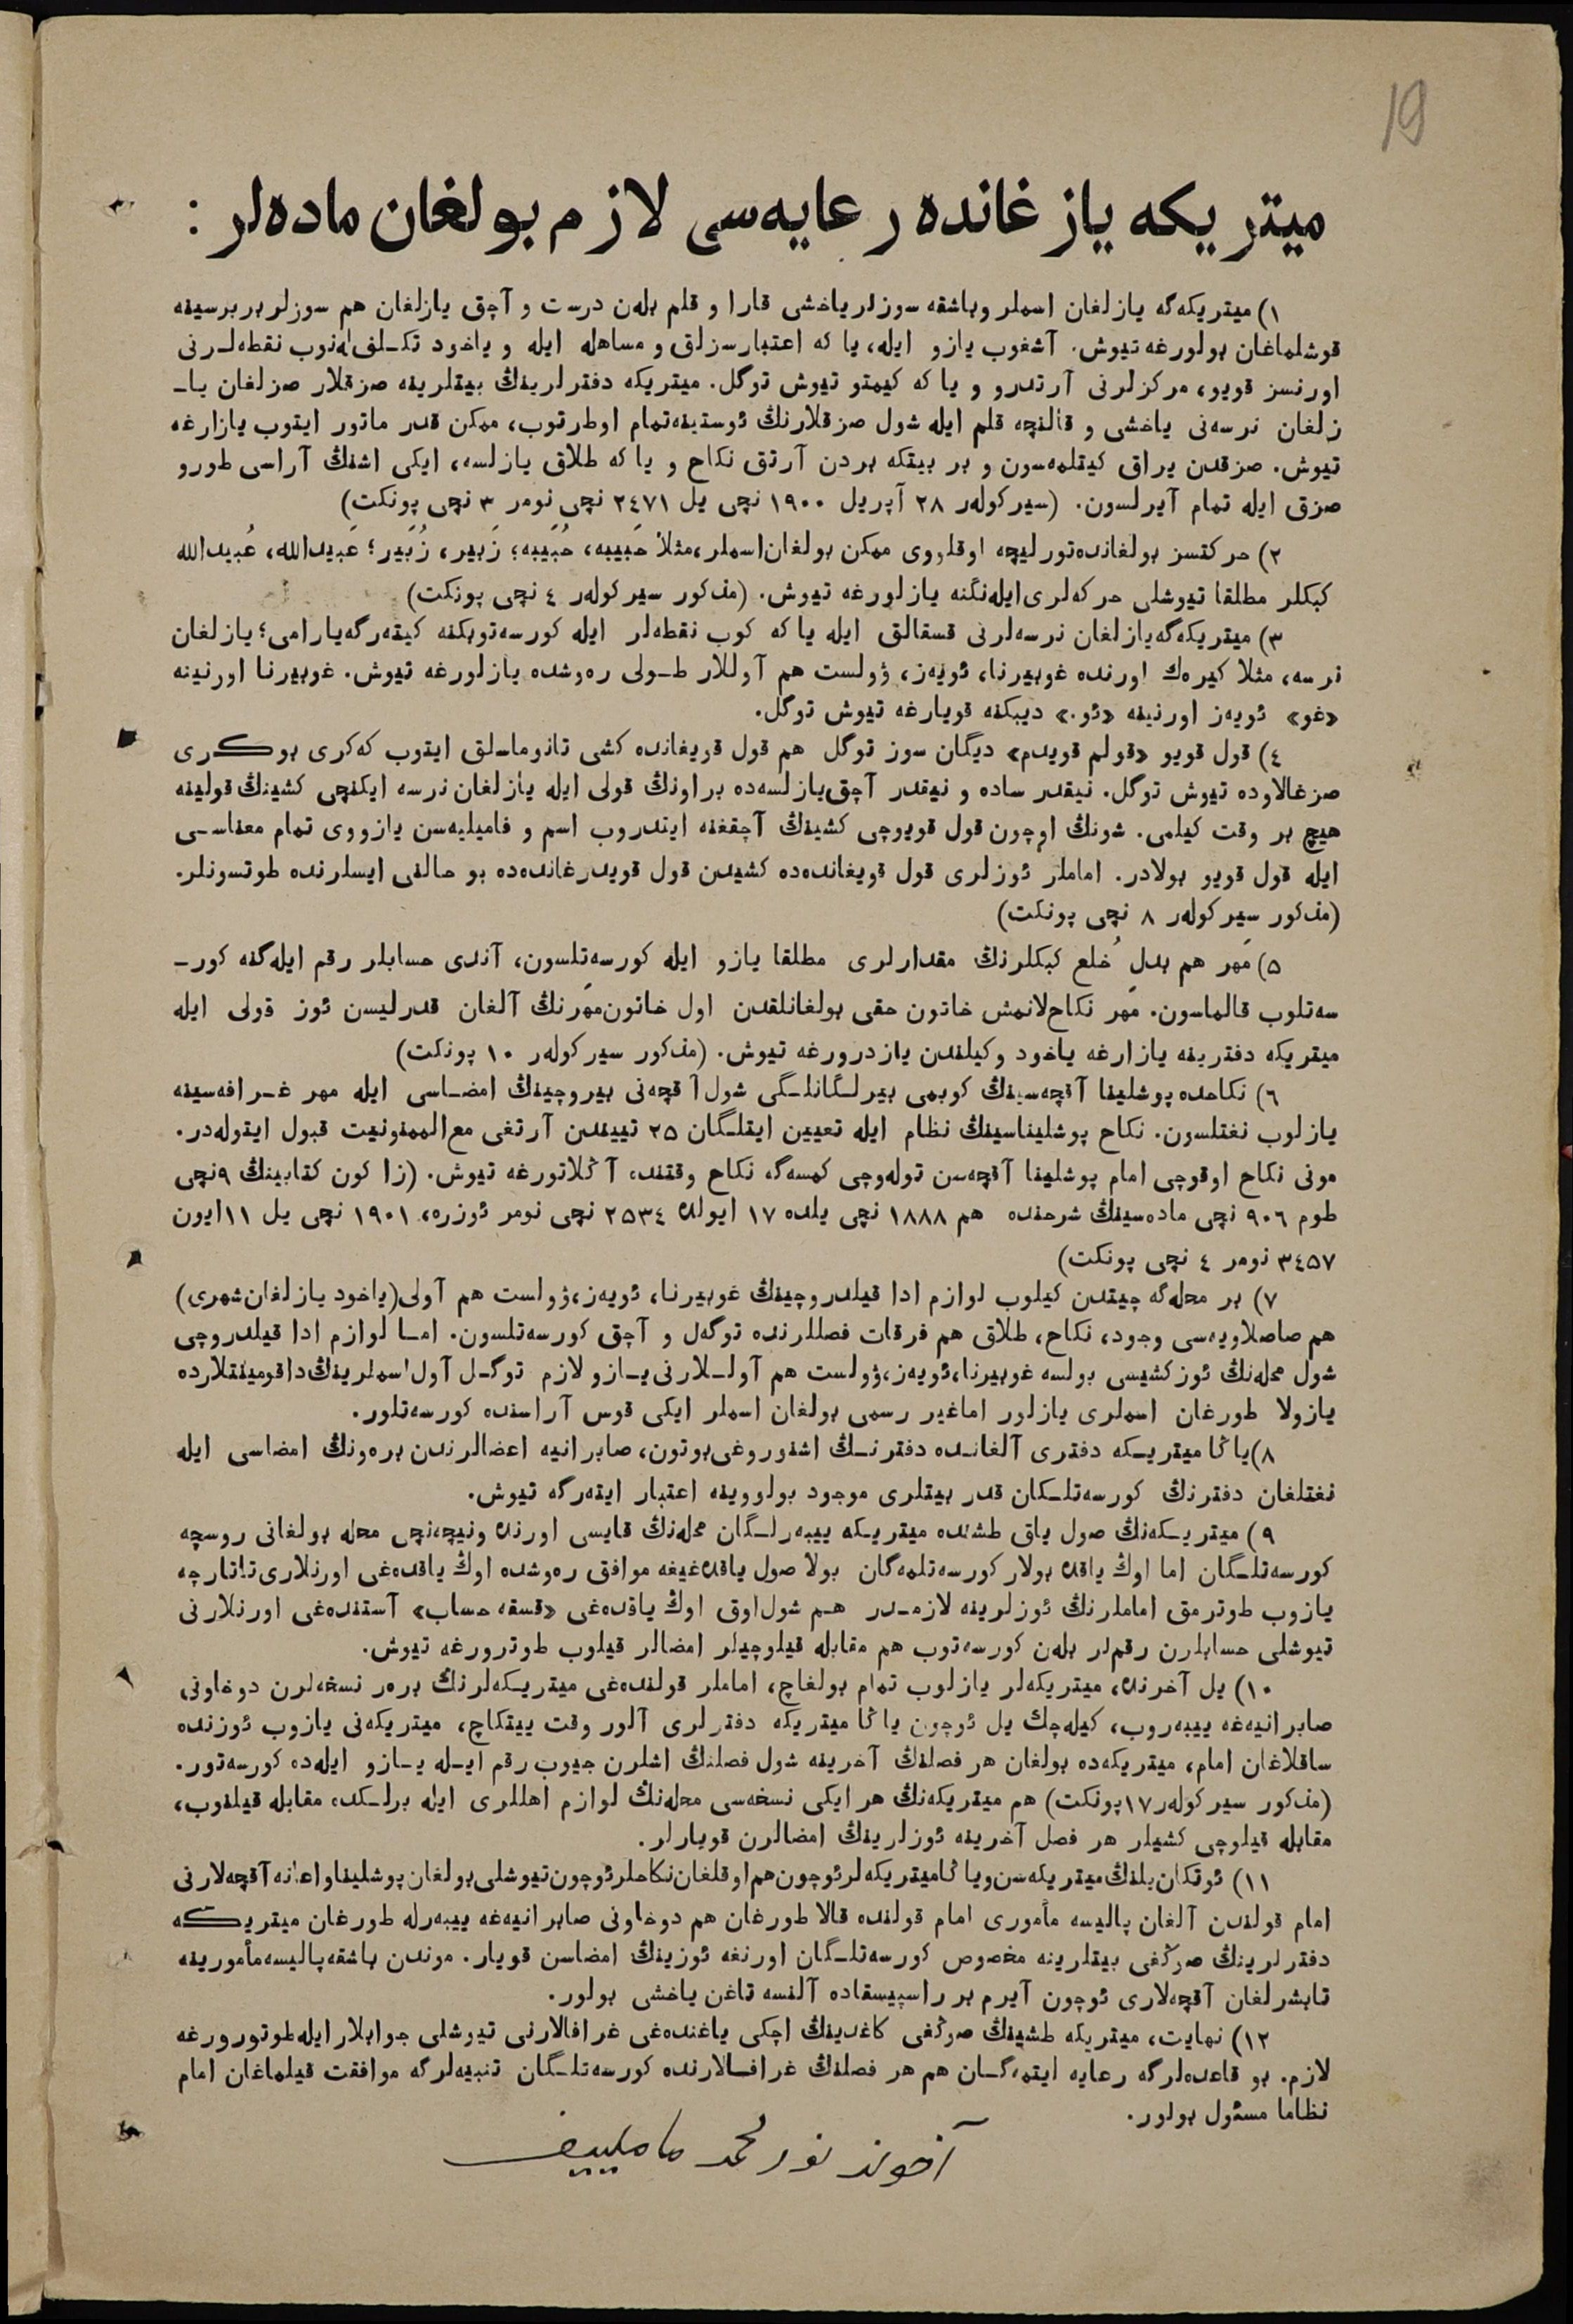 19
ميتريكه يازغانده رعايه‌سى لازم بولغان ماده‌لر :
١) ميتريكه‌گه يازلغان اسملر وباشقه سوزلر ياخشى قارا و قلم بله‌ن درست و آچق يازلغان هم سوزلر بربرسينه
قوشلماغان بولورغه تيوش. آشغوب يازو ايله، يا كه اعتبارسزلق و مساهله ايله و ياخود تكـلف له‌نوب نقطه‌لـرنى
اورنسز قويو، مركزلرنى آرتدرو و يا كه كيمتو تيوش توگل. ميتريكه دفترلرينڭ بيتلرينه صزقلار صزلغان ياـ
زلغان نرسه‌نى ياخشى و قالنچه قلم ايله شول صزقلارنڭ ئوستينه‌تمام اوطرتوب، ممكن قدر ماتور ايتوب يازارغه
تيوش. صزقدن يراق كيتلمه‌سون و بر بيتكه بردن آرتق نكاح و يا كه طلاق يازلسه، ايكى اشنڭ آراسى طورو
صزق ايله تمام آيرلسون. (سيركوله‌ر ٢٨ آپريل ١٩٠٠ نچى يل ٢٤٧١ نچى نومر ٣ نچى پونكت)
٢) حركتسز بولغانده‌تورليچه اوقلووى ممكن بولغان‌اسملر، مثلا حَبيبه، حُبَيبه؛ زَبير، زُبَير؛ عَبيدالله، عُبيدالله
كبكلر مطلقا تيوشلى حركه‌لرى‌ايله‌نگنه يازلورغه تيوش. (مذكور سيركوله‌ر ٤ نچى پونكت)
٣) ميتريكه‌گه‌يازلغان نرسه‌لرنى قسقالق ايله يا كه كوب نقطه‌لر ايله كورسه‌توبكنه كيته‌رگه‌يارامى؛ يازلغان
نرسه، مثلا كيره‌ك اورنده غوبيرنا، ئويه‌ز، ۋولست هم آوللار طـولى ره‌وشده يازلورغه تيوش. غوبيرنا اورنينه
«غو» ئويه‌ز اورنينه «ئو.» ديبكنه قويارغه تيوش توگل.
٤) قول قويو «قولم قويدم» ديگان سوز توگل هم قول قويغانده كشى تانوماسلق ايتوب كه‌كرى بوكرى
صزغالاوده تيوش توگل. نيقدر ساده و نيقدر آچق‌يازلسه‌ده براونڭ قولى ايله يازلغان نرسه ايكنچى كشينڭ قولينه
هيچ بر وقت كيلمى. شونڭ اوچون قول قويوچى كشينڭ آچقغنه ايتدروب اسم و فاميليه‌سن يازووى تمام معناسـى
ايله قول قويو بولادر. اماملر ئوزلرى قول قويغانده‌ده كشيدن قول قويدرغانده‌ده بو حالنى ايسلرنده طوتسونلر.
(مذكور سيركوله‌ر ٨ نچى پونكت)
٥) مَهر هم بدلِ خُلع كبكلرنڭ مقدارلرى مطلقا يازو ايله كورسه‌تلسون، آندى حسابلر رقم ايله‌گنه كورـ
سه‌تلوب قالماسون. مَهر نكاح‌لانمش خاتون حقى بولغانلقدن اول خاتون‌مهرنڭ آلغان قدرليسن ئوز قولى ايله
ميتريكه دفترينه يازارغه ياخود وكيلندن يازدرورغه تيوش. (مذكور سيركوله‌ر ١٠ پونكت)
٦) نكاحده پوشلينا آقچه‌سينڭ كوبمى بيرلـگانلـگى شول آقچه‌نى بيروچينڭ امضـاسى ايله مهر غـرافه‌سينه
يازلوب نغتلسون. نكاح پوشليناسينڭ نظام ايله تعيين ايتلـگان ٢٥ تييندن آرتغى مع‌الممنونيت قبول ايتوله‌در.
مونى نكاح اوقوچى امام پوشلينا آقچه‌سن توله‌وچى كمسه‌گه نكاح وقتنده آڭلاتورغه تيوش. (زاكون كتابينڭ ٩نچى
طوم ٩٠٦ نچى ماده‌سينڭ شرحنده هم ١٨٨٨ نچى يلده ١٧ ايولده ٢٥٣٤ نچى نومر ئوزره، ١٩٠١ نچى يل ١١ايون
٣٤٥٧ نومر ٤ نچى پونكت)
٧) بر محله‌گه چيتدن كيلوب لوازم ادا قيلدروچينڭ غوبيرنا، ئويه‌ز،ۋولست هم آولى(ياخود يازلغان‌شهرى)
هم صاصلاويه‌سى وجود، نكاح، طلاق هم فرقات فصللرنده توگه‌ل و آچق كورسه‌تلسون. امـا لوازم ادا قيلدروچى
شول محله‌نڭ ئوزكشيسى بولسه غوبيرنا،ئويه‌ز،ۋولست هم آولـلارنى‌يـازو لازم توگـل آول‌اسملرينڭ‌داقومينتلارده
يازولا طورغان اسملرى يازلور اماغير رسمى بولغان اسملر ايكى قوس آراسنده كورسه‌تلور.
٨)ياڭا ميتريـكه دفترى آلغانـده دفترنـڭ اشنوروغى‌بوتون، صابرانيه اعضالرندن بره‌ونڭ امضاسى ايله
نغتلغان دفترنڭ كورسه‌تلـكان قدر بيتلرى موجود بولووينه اعتبار ايته‌رگه تيوش.
٩) ميتريـكه‌نڭ صول ياق طشنده ميتريـكه ييبه‌رلـگان محله‌نڭ قايسى اورنده ونيچه‌نچى محله بولغانى روسچه
كورسه‌تلـگان اما اوڭ ياقده بولار كورسه‌تلمه‌گان بولا صول ياقده‌غيغه موافق ره‌وشده اوڭ ياقده‌غى اورنلارى‌تاتارچه
يازوب طوترمق اماملرنڭ ئوزلرينه لازمـدر هـم شول‌اوق اوڭ ياقده‌غى «قسقه حساب» آستنده‌غى اورنلارنى
تيوشلى حسابلرن رقم‌لر بله‌ن كورسه‌توب هم مقابله قيلوچيلر امضالر قيلوب طوترورغه تيوش.
١٠) يل آخرنده، ميتريكه‌لر يازلوب تمام بولغاچ، اماملر قولنده‌غى ميتريـكه‌لرنڭ بره‌ر نسخه‌لرن دوخاونى
صابرانيه‌غه ييبه‌روب، كيله‌چك يل ئوچون ياڭا ميتريكه دفترلرى آلور وقت ييتكاچ، ميتريكه‌نى يازوب ئوزنده
ساقلاغان امام، ميتريكه‌ده بولغان هر فصلنڭ آخرينه شول فصلنڭ اشلرن جيوب رقم ايـله يـازو ايله‌ده كورسه‌تور.
(مذكور سيركوله‌ر١٧پونكت) هم ميتريكه‌نڭ هر ايكى نسخه‌سى محله‌نڭ لوازم اهللرى ايله برلـكده مقابله قيلنوب،
مقابله قيلوچى كشيلر هر فصل آخرينه ئوزلرينڭ امضالرن قويارلر.
١١) ئوتكان‌يلنڭ‌ميتريكه‌سن‌وياڭاميتريكه‌لرئوچون‌هم‌اوقلغان‌نكاحلرئوچون‌تيوشلى‌بولغان‌پوشليناواعانه‌آقچه‌لارنى
امام قولندن آلغان پاليسه مأمورى امام قولنده قالا طورغان هم دوخاونى صابرانيه‌غه ييبه‌رله طورغان ميتريكه
دفترلرينڭ صوڭغى بيتلرينه مخصوص كورسه‌تلـگان اورنغه ئوزينڭ امضاسن قويار. موندن باشقه‌پاليسه‌مأمورينه
تابشرلغان آقچه‌لارى ئوچون آيرم بر راسپيسقاده آلنسه تاغن ياخشى بولور.
١٢) نهايت، ميتريكه طشينڭ صوڭغى كاغدينڭ اچكى ياغنده‌غى غرافالارنى تيوشلى جوابلارايله‌طوتورورغه
لازم. بو قاعده‌لرگه رعايه ايتمه‌گـان هم هر فصلنڭ غرافـالارنده كورسه‌تلـگان تنبيه‌لرگه موافقت قيلماغان امام
نظاما مسئول بولور.
آخوند نورمحمد مامليیف